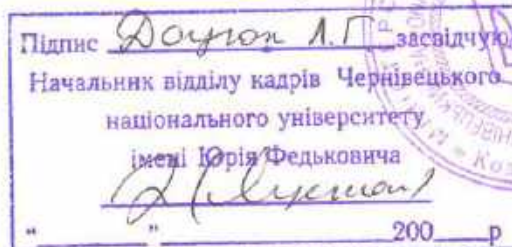 Підпис А. Г. засвідчую
Начальник відділу кадрів Чернівецького
національного університету
імені Юрія Федьковича
" " 200 р